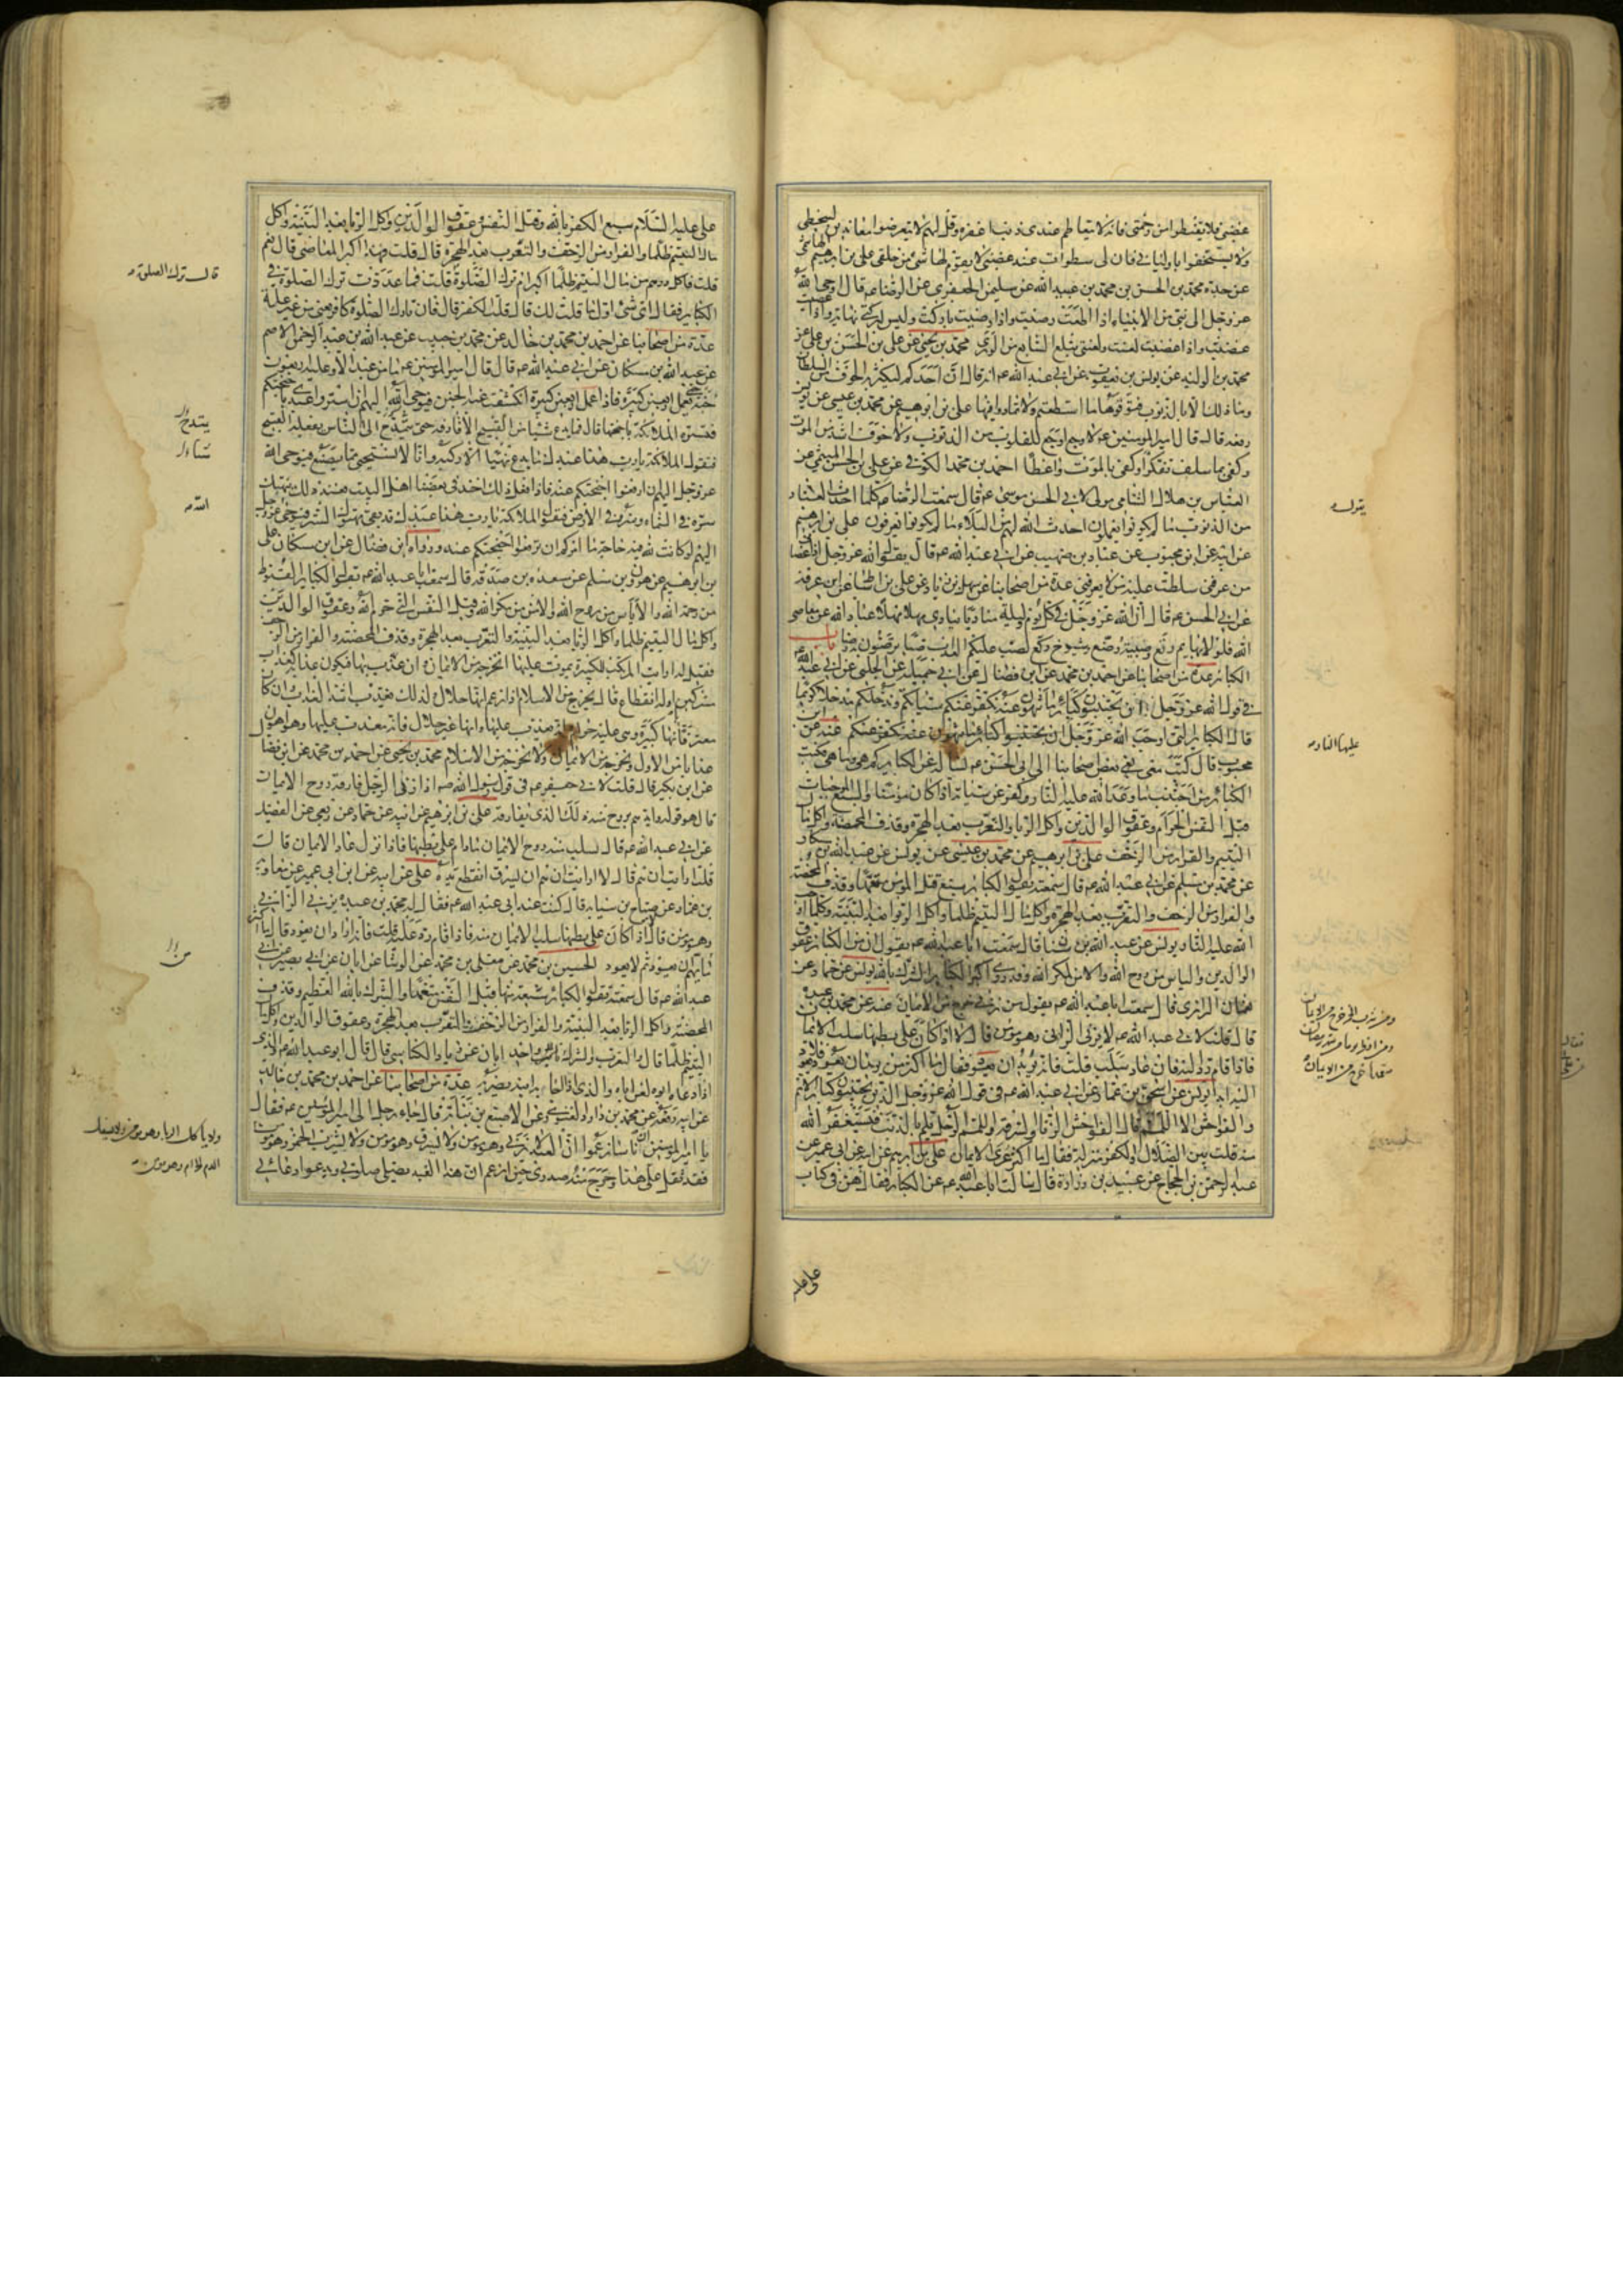 غضبي فلا تقنطوا من رحمتي فانه لا يتعاظم عندي ذنب اغفره وقل لهم لا يتعرضوا معاندين لسخطي
ولا يستخفوا باوليائي فان لي سطوات عند غضبي لا يقوم لها شيء من خلقي علي بن ابرهيم الهاشمي
عن جده محمد بن الحسن بن محمد بن عبيد الله عن سليمن الجعفري عن الرضا عم قال اوحى الله
عز وجل الى نبي من الانبياء اذا اطعت رضيت واذا رضيت باركت وليس لبركتي نهاية واذا عصيت
غضبت واذا غضبت لعنت ولعنتي تبلغ السابع من الورى محمد بن يحيى عن علي بن الحسن بن علي عن
محمد بن الوليد عن يونس بن يعقوب عن ابي عبد الله عم انه قال ان احدكم ليكثر به الخوف من السلطان
وما ذلك الا بالذنوب فتوقوها ما استطعتم ولا تمادوا فيها علي بن ابرهيم عن محمد بن عيسى عن يونس
رفعه قال قال امير المومنين عم لا وجع اوجع للقلوب من الذنوب ولا خوف اشد من الموت
وكفى بما سلف تفكرا وكفى بالموت واعظا احمد بن محمد الكوفي عن علي بن الحسن الميثمي عن
العباس بن هلال الشامي مولى لابي الحسن موسى عم قال سمعت الرضا عم كلما احدث العباد
من الذنوب ما لم يكونوا يعملون احدث الله لهم من البلاء ما لم يكونوا يعرفون علي بن ابرهيم
عن ابيه عن ابن محبوب عن عباد بن صهيب عن ابي عبد الله عم قال يقول الله عز وجل اذا عصاني
من عرفني سلطت عليه من لا يعرفني عدة من اصحابنا عن سهل بن زياد عن علي بن اسباط عن ابن عرفة
عن ابي الحسن عم قال ان لله عز وجل في كل يوم وليلة مناديا ينادي مهلا مهلا عباد الله عن معاصي
الله فلولا بهايم رتع وصبية رضع وشيوخ ركع لصب عليكم العذاب صبا ترضون به رضا باب
الكبائر عدة من اصحابنا عن احمد بن محمد عن ابن فضال عن ابي جميلة عن الحلبي عن ابي عبد الله عم
في قول الله عز وجل ان تجتنبوا كبائر ما تنهون عنه نكفر عنكم سيئاتكم وندخلكم مدخلا كريما
قال الكبائر التي اوجب الله عز وجل
محبوب قال كتب معي بعض اصحابنا الى ابي الحسن عم يسأله عن الكبائر كم هي وما هي فكتب
الكبائر من اجتنب ما وعد الله عليه النار كفر عنه سيئاته اذا كان مؤمنا والسبع الموجبات
قتل النفس الحرام وعقوق الوالدين واكل الربا والتعرب بعد الهجرة وقذف المحصنة واكل مال
اليتيم والفرار من الزحف علي بن ابرهيم عن محمد بن عيسى عن يونس عن عبد الله بن مسكان
عن محمد بن مسلم عن ابي عبد الله عم قال سمعته يقول الكبائر سبع قتل المومن متعمدا وقذف المحصنة
والفرار من الزحف والتعرب بعد الهجرة واكل مال اليتيم ظلما واكل الربا بعد البينة وكلما اوجب
الله عليه النار يونس عن عبد الله بن سنان قال سمعت ابا عبد الله عم يقول ان من الكبائر عقوق
الوالدين والياس من روح الله والامن لمكر الله وقد روي اكبر الكبائر الشرك بالله يونس عن حماد عن
نعمان الرازي قال سمعت ابا عبد الله عم يقول من زنى خرج من الايمان عنه عن محمد بن عبده
قال قلت لابي عبد الله عم لا يزني الزاني وهو مومن قال لا اذا كان على بطنها سلب الايمان
فاذا قام رد اليه فان عاد سلب قلت فانه يريد ان يعود فقال ما اكثر من يريد ان يعود فلا يعود
اليه ابدا يونس عن اسحق بن عمار عن ابي عبد الله عم في قول الله عز وجل الذين يجتنبون كبائر الاثم
والفواحش الا اللمم قال الفواحش الزنا والسرقة واللمم الرجل يلم بالذنب فيستغفر الله
منه قلت بين الضلال والكفر منزلة فقال ما اكثر عرى الايمان علي بن ابرهيم عن ابيه عن ابن ابي عمير عن
عبد الرحمن بن الحجاج عن عبيد بن زرارة قال سالت ابا عبد الله عم عن الكبائر فقال هن في كتاب
يقول
عليها النار
ومن شرب الخمر خرج من الايمان
ومن افطر يوما من شهر رمضان
متعمدا خرج من الايمان
علي عليه السلام سبع الكفر بالله وقتل النفس وعقوق الوالدين واكل الربا بعد البينة واكل
مال اليتيم ظلما والفرار من الزحف والتعرب بعد الهجرة قال قلت فهذا اكبر المعاصي قال نعم
قلت فاكل درهم من مال اليتيم ظلما اكبر ام ترك الصلوة قلت فما عددت ترك الصلوة في
الكبائر فقال اي شيء اول ما قلت لك قال قلت الكفر قال فان تارك الصلوة كافر يعني من غير علة
عدة من اصحابنا عن احمد بن محمد بن خالد عن محمد بن حبيب عن عبد الله بن عبد الرحمن الاصم
عن عبد الله بن مسكان عن ابي عبد الله عم قال قال امير المومنين عم ما من عبد الا وعليه اربعون
جنة حتى يعمل اربعين كبيرة فاذا عمل اربعين كبيرة انكشفت عنه الجنن فيوحى الله اليهم ان استروا عبدي باجنحتكم
فتستره الملائكة باجنحتها قال فما يدع شيئا من القبيح الا قارفه حتى يمتدح الى الناس بفعله القبيح
فتقول الملائكة يا رب هذا عبدك ما يدع شيئا الا ركبه وانا لنستحيي مما يصنع فيوحى الله
عز وجل اليهم ان ارفعوا اجنحتكم عنه فاذا فعل ذلك اخذ في بغضنا اهل البيت فعند ذلك ينهتك
ستره في السماء وستره في الارض فيقول الملائكة يا رب هذا عبدك قد بقي مهتوك الستر فيوحى عز وجل
اليهم لو كانت لله فيه حاجة ما امركم ان ترفعوا اجنحتكم عنه ورواه ابن فضال عن ابن مسكان علي
بن ابرهيم عن هرون بن مسلم عن مسعدة بن صدقة قال سمعت ابا عبد الله عم يقول الكبائر القنوط
من رحمة الله والاياس من روح الله والامن من مكر الله وقتل النفس التي حرم الله وعقوق الوالدين
واكل مال اليتيم ظلما واكل الربا بعد البينة والتعرب بعد الهجرة وقذف المحصنة والفرار من الزحف
فقيل له ارايت المرتكب للكبيرة يموت عليها اتخرجه من الايمان وان عذب بها فيكون عذابه كعذاب
المشركين او له انقطاع قال يخرج من الاسلام اذا زعم انها حلال ولذلك يعذب اشد العذاب وان كان
معترفا بانها كبيرة وهي عليه حرام وانه يعذب عليها وانها غير حلال فانه معذب عليها وهو اهون
عذابا من الاول ويخرجه من الايمان ولا يخرجه من الاسلام محمد بن يحيى عن احمد بن محمد عن ابن فضال
عن ابن بكير قال قلت لابي جعفر عم في قول رسول الله صم اذا زنى الرجل فارقه روح الايمان
قال هو قوله وايدهم بروح منه ذلك الذي يفارقه علي بن ابرهيم عن ابيه عن حماد عن ربعي عن الفضيل
عن ابي عبد الله عم قال يسلب منه روح الايمان ما دام على بطنها فاذا نزل عاد الايمان قال
قلت ارايت ان هم قال لا ارايت ان هم ان يسرق اتقطع يده علي عن ابيه عن ابن ابي عمير عن معاوية
بن عمار عن صباح بن سيابة قال كنت عند ابي عبد الله عم فقال له محمد بن عبده يزني الزاني
وهو مومن قال لا اذا كان على بطنها سلب الايمان منه فاذا قام رد عليه قلت فانه اراد ان يعود قال ما اكثر
ما يهم ان يعود ثم لا يعود الحسين بن محمد عن معلى بن محمد عن الوشا عن ابان عن ابي بصير عن ابي
عبد الله عم قال سمعته يقول الكبائر سبعة منها قتل النفس متعمدا والشرك بالله العظيم وقذف
المحصنة واكل الربا بعد البينة والفرار من الزحف والتعرب بعد الهجرة وعقوق الوالدين واكل مال
اليتيم ظلما قال والتعرب والشرك واحد ابان عن زياد الكناسي قال قال ابو عبد الله عم والذي
اذا دعاه ابوه لعن اباه والذي اذا اجابه ابنه يضربه عدة من اصحابنا عن احمد بن محمد بن خالد
عن ابيه رفعه عن محمد بن داود الغنوي عن الاصبغ بن نباتة قال جاء رجل الى امير المومنين عم فقال
يا امير المومنين ان ناسا زعموا ان العبد لا يزني وهو مومن ولا يسرق وهو مومن ولا يشرب الخمر وهو مومن
فقد ثقل علي هذا وحرج منه صدري حين ازعم ان هذا العبد يصلي صلوتي ويدعو دعائي
قال ترك الصلوة
يتمدح
الله
ولا ياكل الربا وهو مومن ولا يسفك
الدم الحرام وهو مومن
علي عليه